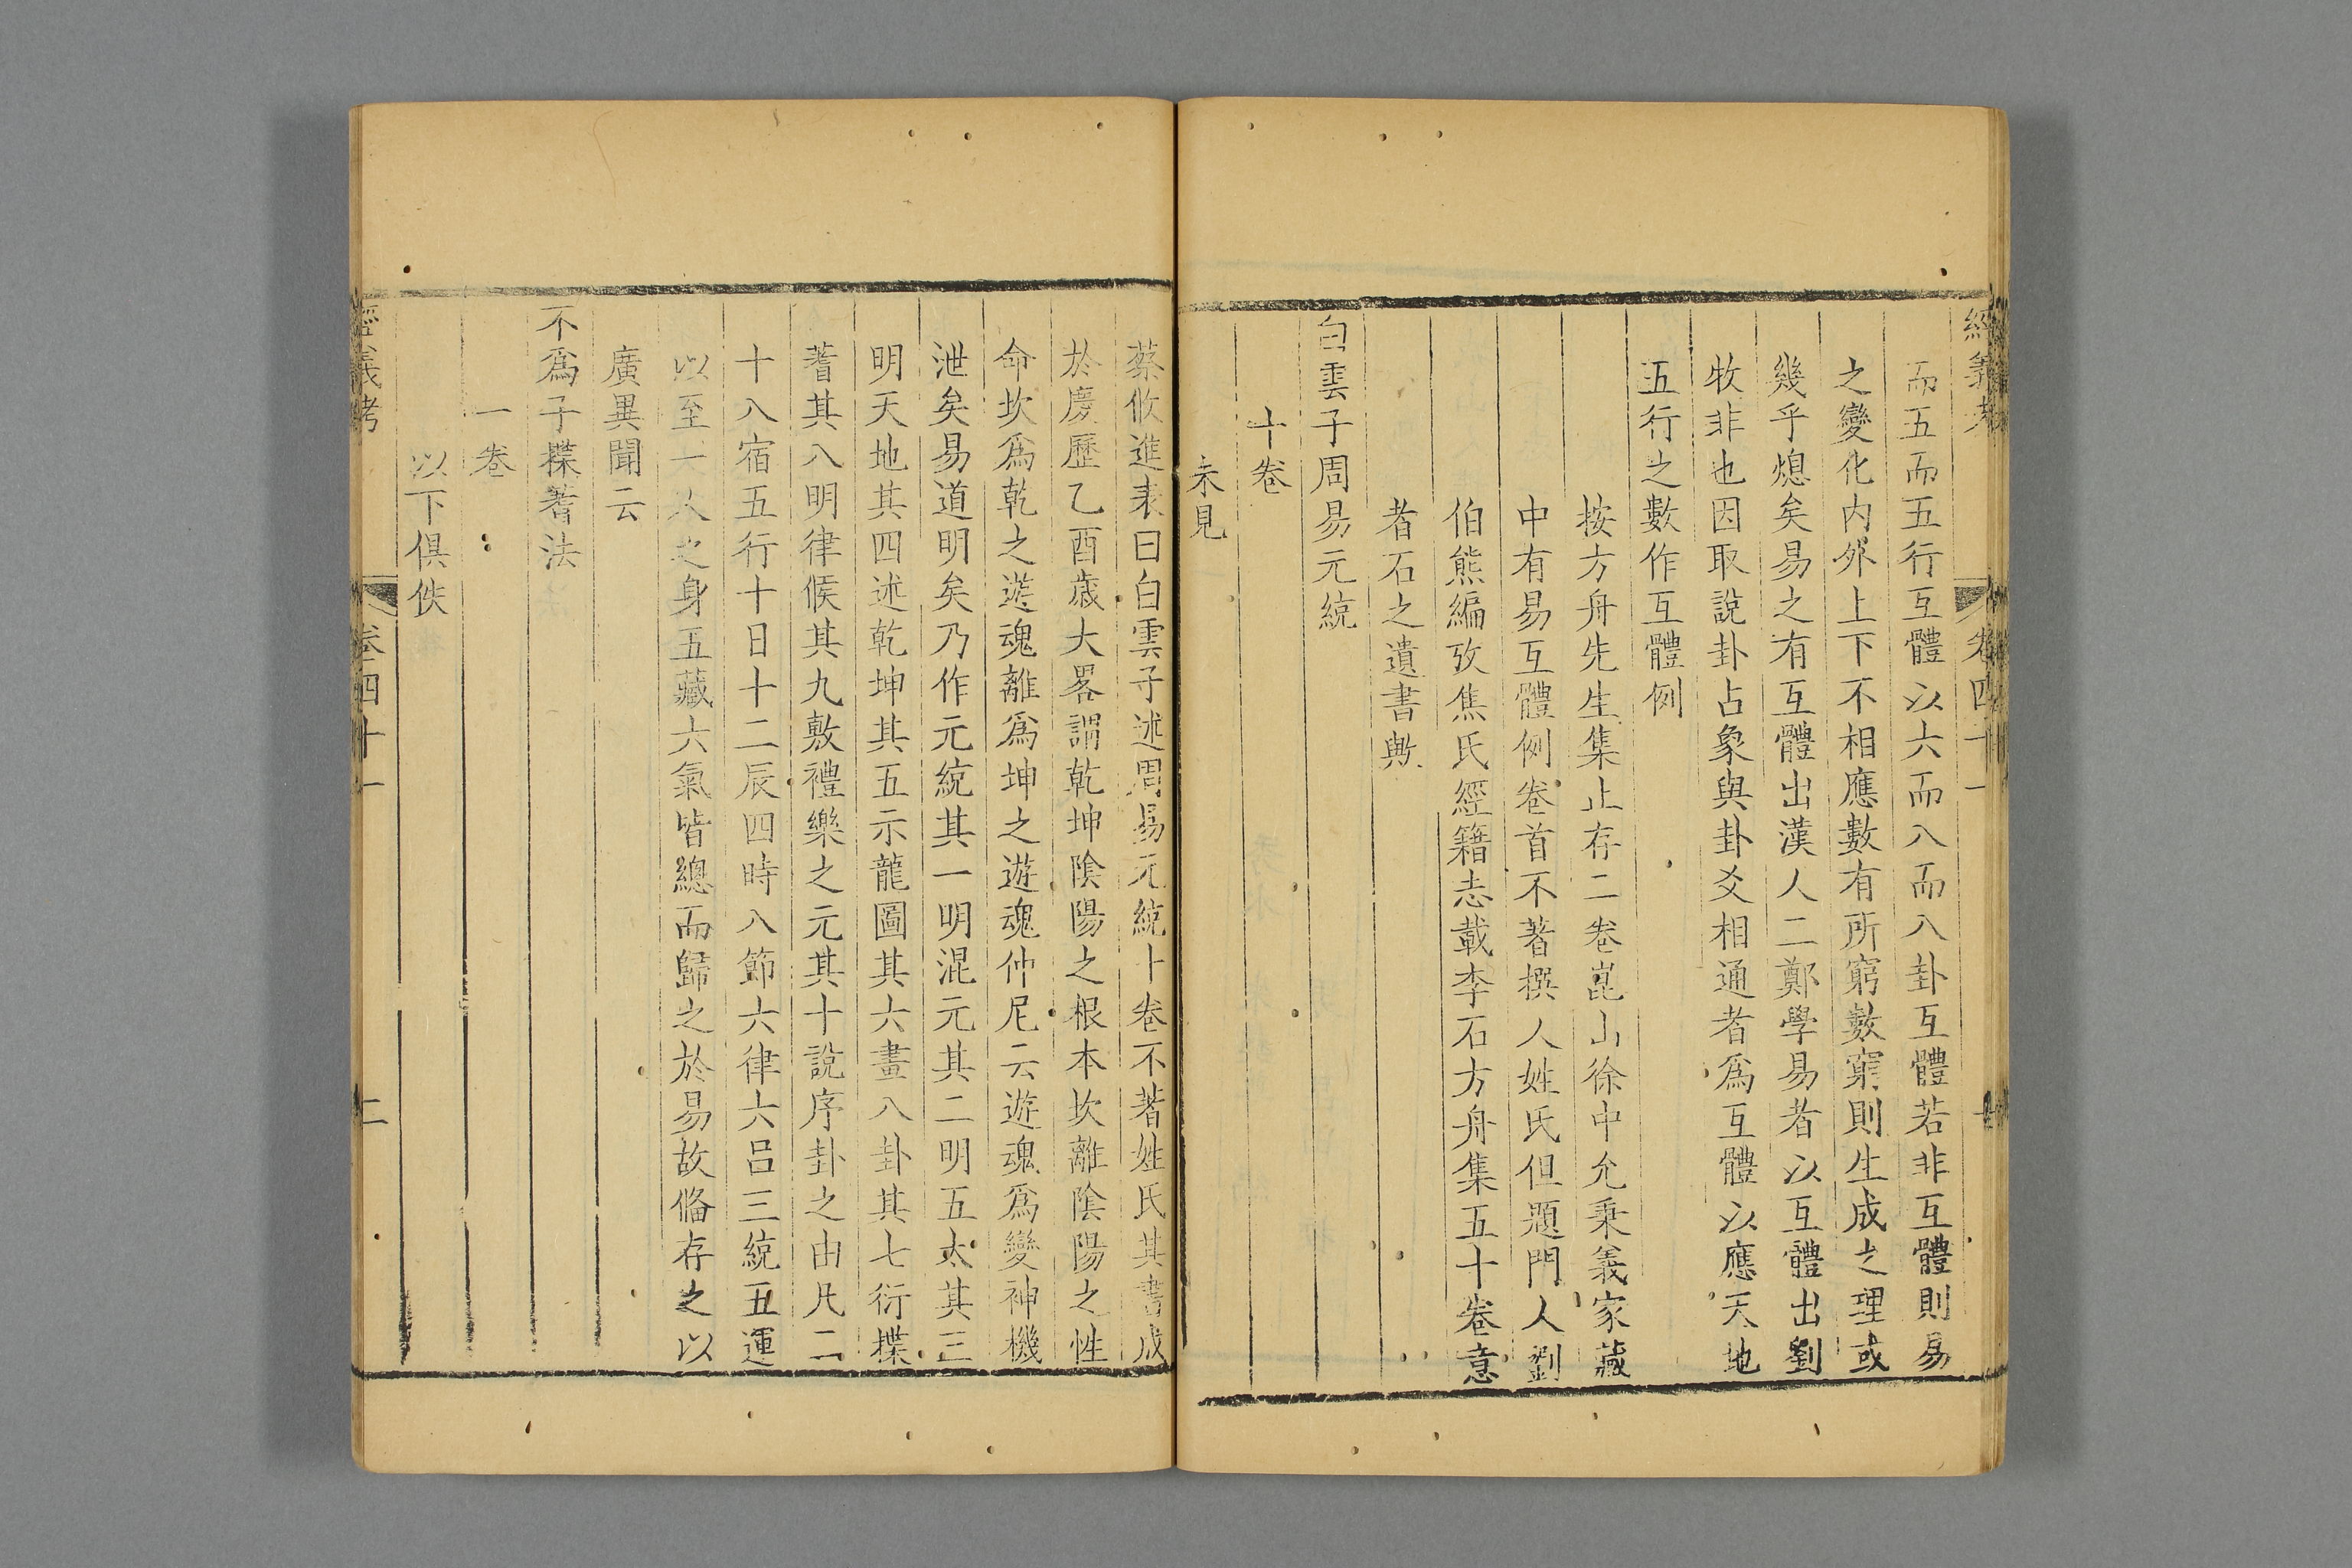 經義考 卷四十一
而五而五行互體以六而八而八卦互體若非互體則易
之變化內外上下不相應數有所窮數窮則生成之理或
幾乎熄矣易之有互體出漢人二鄭學易者以互體出劉
牧非也因取說卦占象與卦爻相通者爲互體以應天地
五行之數作互體例
按方舟先生集止存二卷崑山徐中允秉義家藏
中有易互體例卷首不著撰人姓氏但題門人劉
伯熊編攷焦氏經籍志載李石方舟集五十卷意
者石之遺書歟
白雲子周易元統
十卷
未見
蔡攸進表曰白雲子述周易元統十卷不著姓氏其書成
於慶歷乙酉歲大畧謂乾坤陰陽之根本坎離陰陽之性
命坎爲乾之遊魂離爲坤之遊魂仲尼云遊魂爲變神機
泄矣易道明矣乃作元統其一明混元其二明五太其三
明天地其四述乾坤其五示龍圖其六畫八卦其七衍揲
蓍其八明律候其九敷禮樂之元其十說序卦之由凡二
十八宿五行十日十二辰四時八節六律六呂三統五運
以至一人之身五藏六氣皆總而歸之於易故備存之以
廣異聞云
不爲子揲蓍法
一卷
以下俱佚
經義考 卷四十一 二